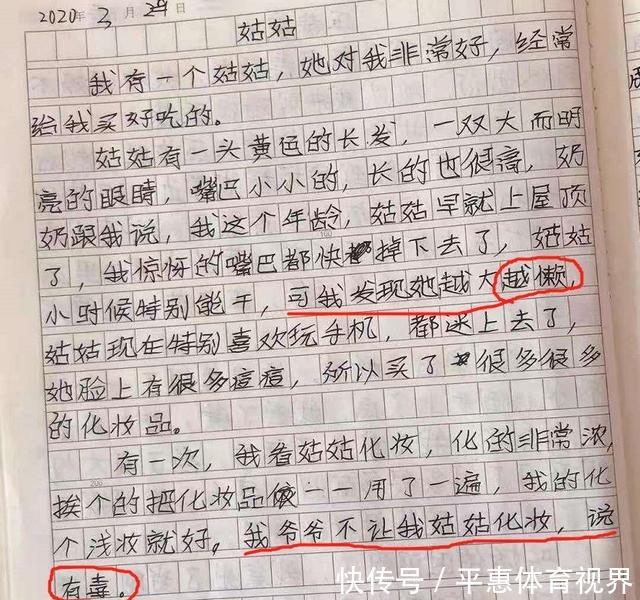 2020年 3 月 29 日
姑姑
我有一个姑姑，她对我非常好，经常
给我买好吃的。
姑姑有一头黄色的长发，一双大而明
亮的眼睛，嘴巴小小的，长的也很高，奶
奶跟我说，我这个年龄，姑姑早就上屋顶
了，我惊讶的嘴巴都快掉下去了，姑姑
小时候特别能干，可我发现她越大越懒，
姑姑现在特别喜欢玩手机，都迷上去了，
她脸上有很多痘痘，所以买了很多很多
的化妆品。
有一次，我看姑姑化妆，化的非常浓，
挨个的把化妆品一一用了一遍，我的化
个浅妆就好。我爷爷不让我姑姑化妆，说
有毒。
快传号／平惠体育视界